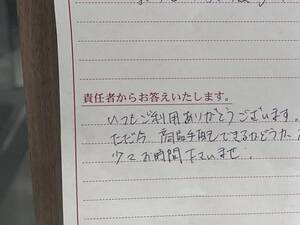 責任者からお答えいたします。
いつもご利用ありがとうございます。
ただ今 商品手配できるかどうか
少々お時間下さいませ.